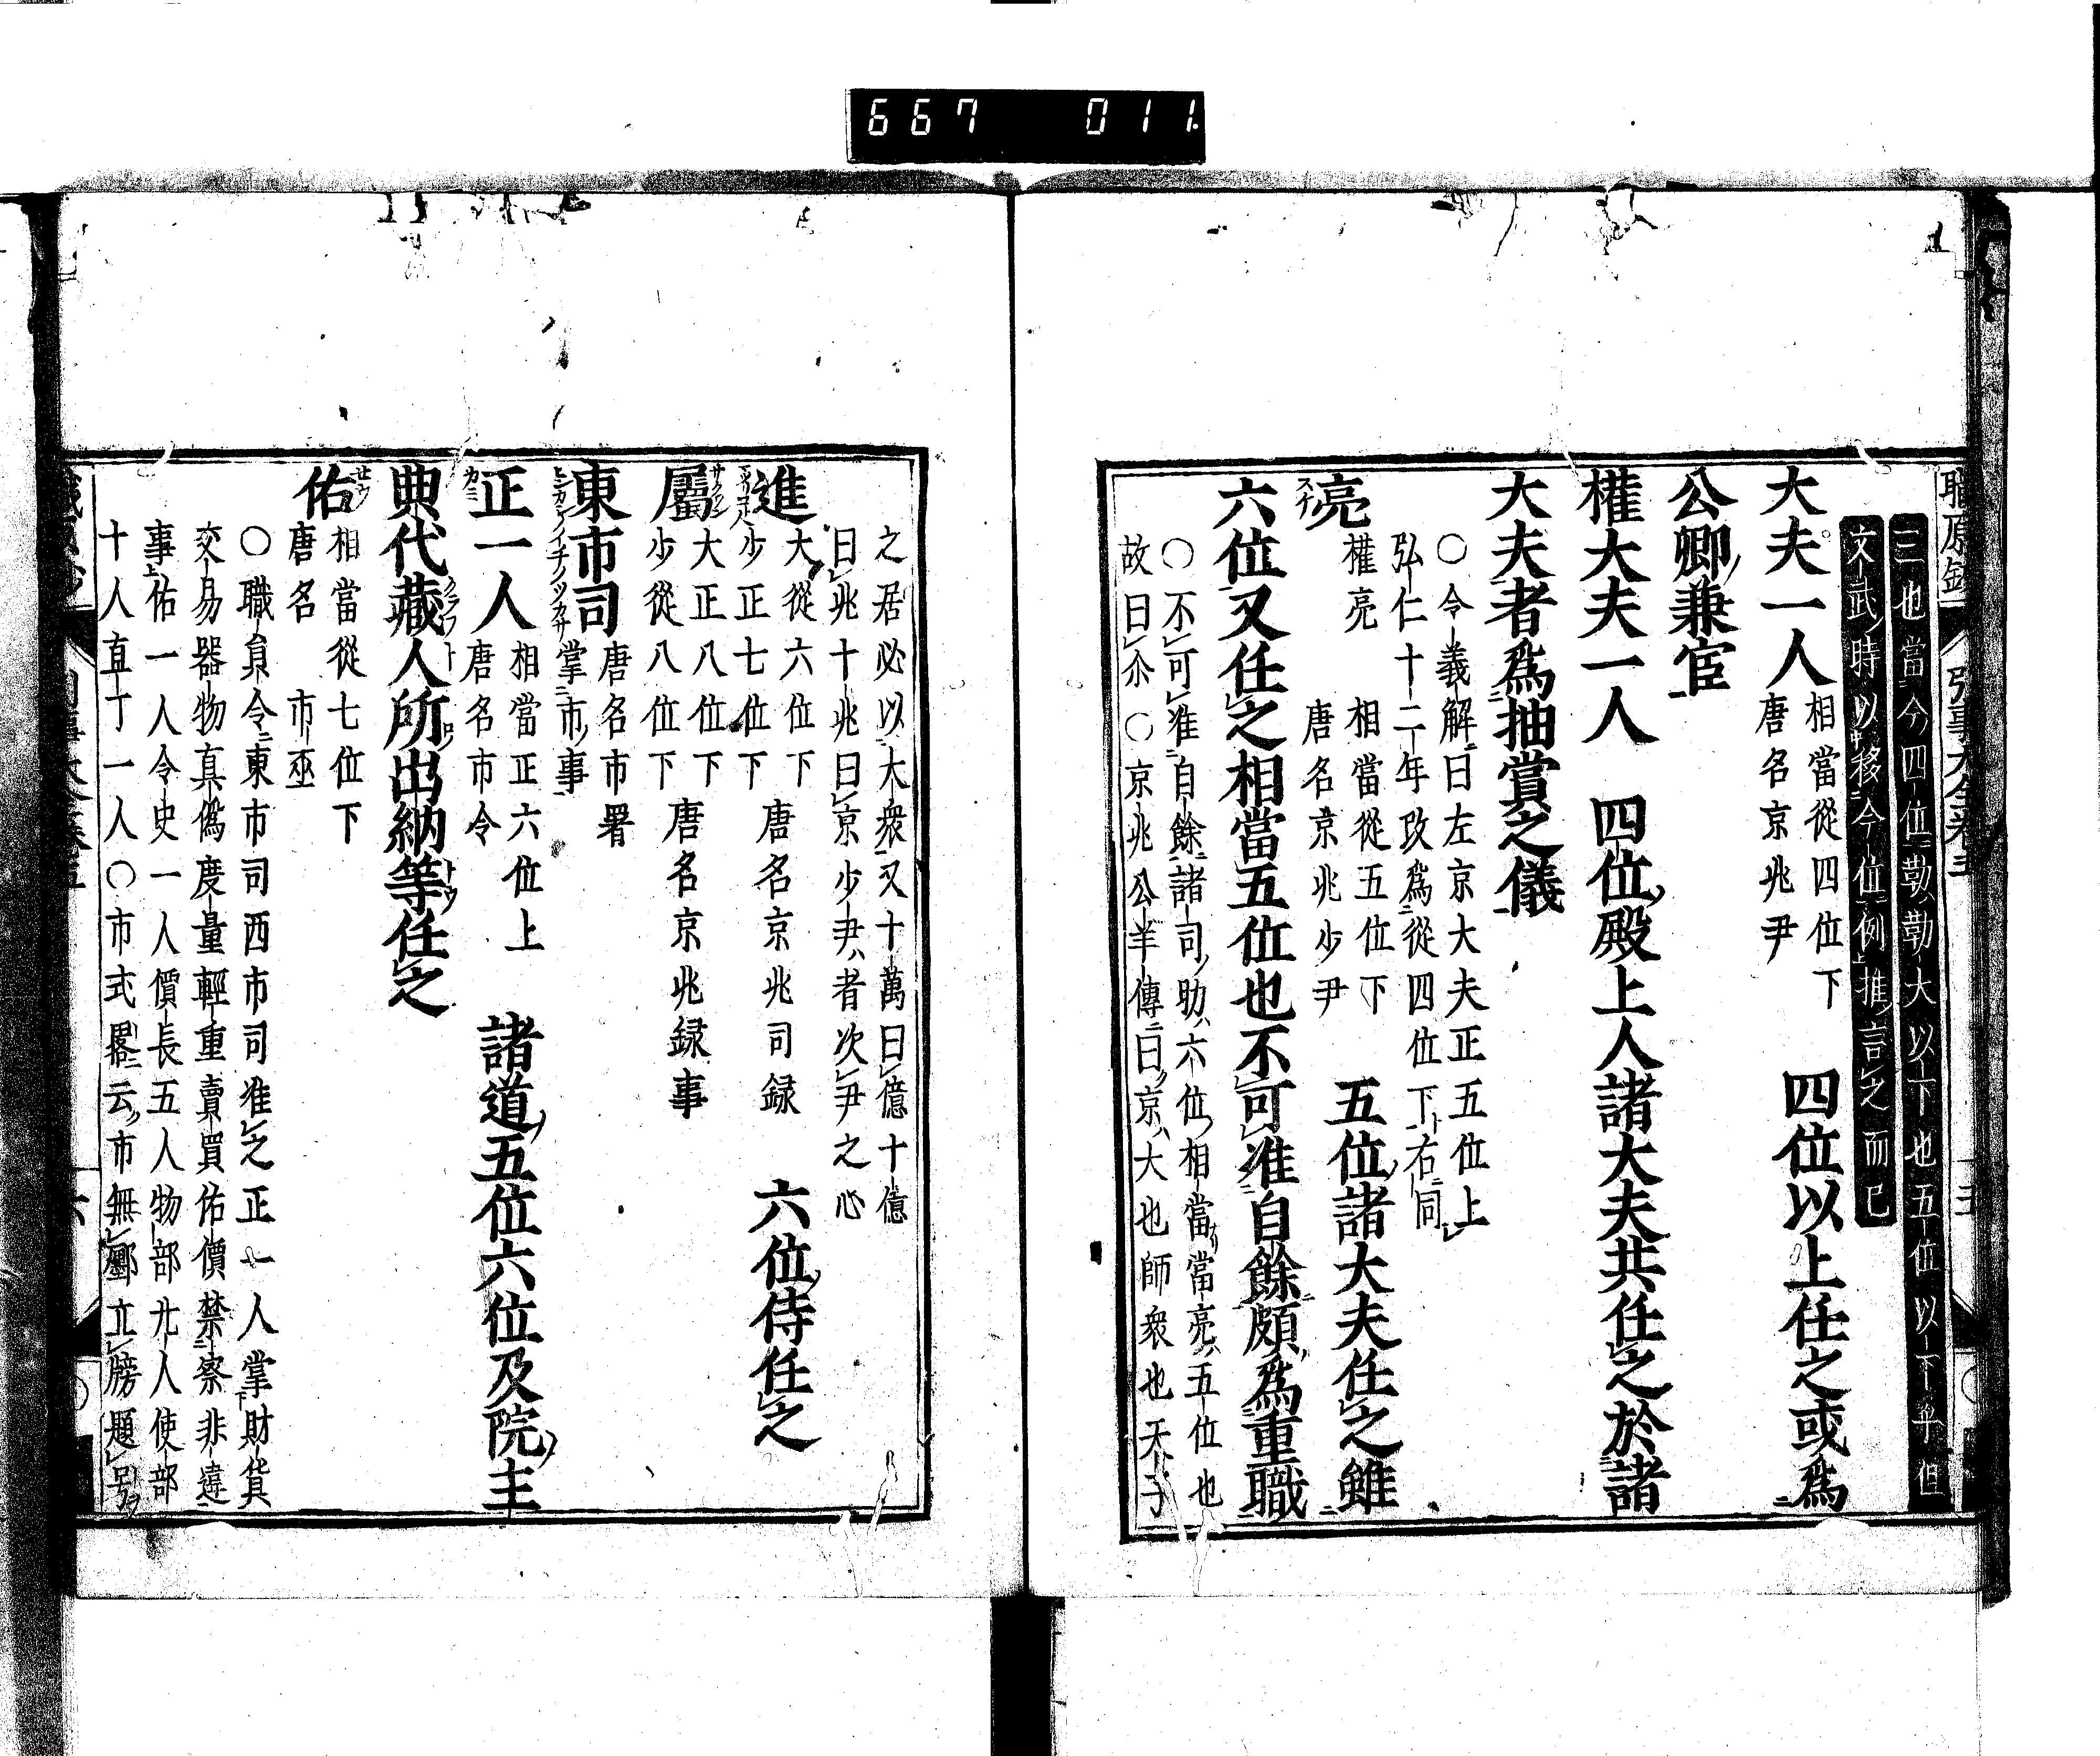 667 011
三也當今四位勅勅大以下也五位以下乎但
文武時以移今位例推言之而已
大夫一人 相當從四位下 四位以上任之或爲
唐名京兆尹
公卿兼官
權大夫一人 四位殿上人諸大夫共任之於諸
大夫者爲抽賞之儀
○令義解曰左京大夫正五位上
弘仁十二年改爲從四位下右同
亮 相當從五位下 五位諸大夫任之雖
スケ
權亮 唐名京兆少尹
六位又任之相當五位也不可准自餘頗爲重職
○不可准自餘諸司助六位相當當亮五位也
故曰尒○京兆公羊傳曰京大也師衆也天子
之居必以大衆又十萬曰億十億
曰兆十兆曰京少尹者次尹之心
進 大從六位下 唐名京兆司録 六位侍任之
少正七位下
屬 大正八位下 唐名京兆録事
サクワン
少從八位下
東市司 唐名市署
ヒンカシノイチノツカサ
掌市事
正一人 相當正六位上 諸道五位六位及院主
カミ
唐名市令
典代藏人所出納等任之
佑 相當從七位下
セウ
唐名 市丞
○職員令東市司西市司准之正一人掌財貨
交易器物真僞度量輕重賣買佑價禁察非違
事佑一人令史一人價長五人物部廿人使部
十人直丁一人○市式畧云市無鄽立牓題号